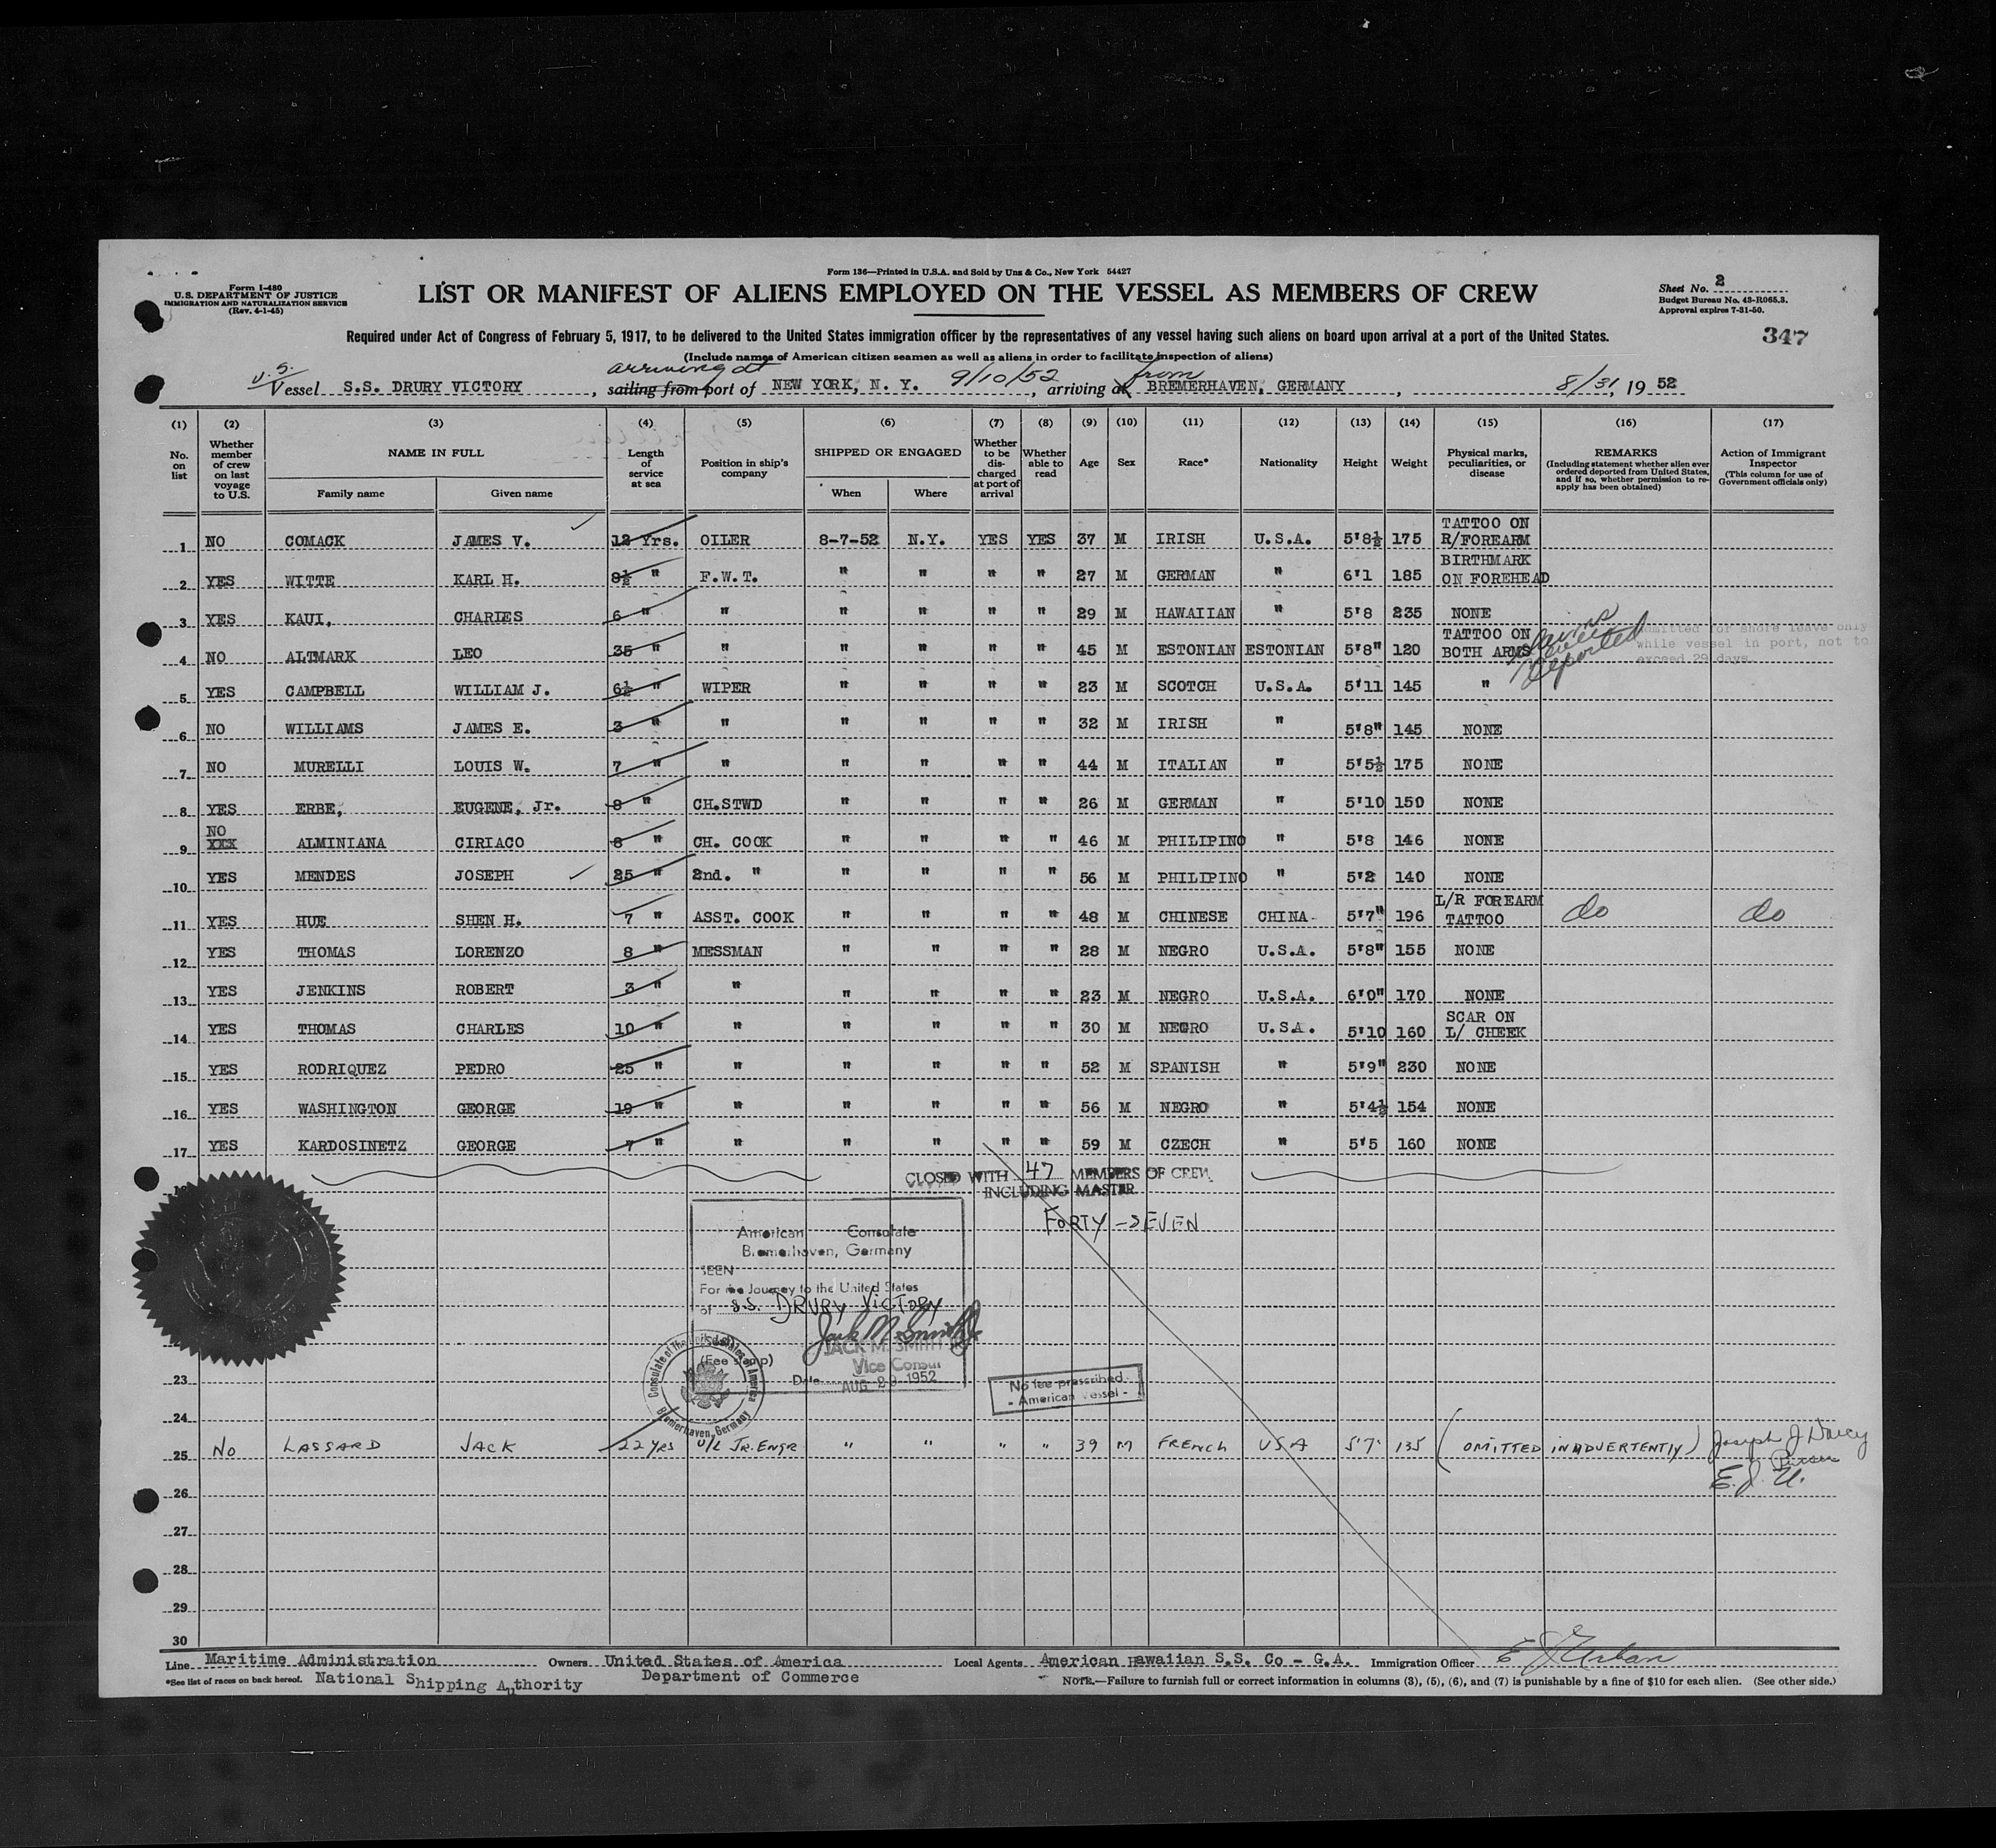 Form 136—Printed in U.S.A. and Sold by Unz & Co., New York 54427
Form I-480
U.S. DEPARTMENT OF JUSTICE
IMMIGRATION AND NATURALIZATION SERVICE
(Rev. 4-1-45)
LIST OR MANIFEST OF ALIENS EMPLOYED ON THE VESSEL AS MEMBERS OF CREW
Sheet No. 2
Budget Bureau No. 43-R065.3.
Approval expires 7-31-50.
347
Required under Act of Congress of February 5, 1917, to be delivered to the United States immigration officer by the representatives of any vessel having such aliens on board upon arrival at a port of the United States.
(Include names of American citizen seamen as well as aliens in order to facilitate inspection of aliens)
U.S. arriving at from
Vessel S.S. DRURY VICTORY, sailing from port of NEW YORK, N. Y. 9/10/52, arriving at BREMERHAVEN, GERMANY, 8/31, 19 52
(1) (2) (3) (4) (5) (6) (7) (8) (9) (10) (11) (12) (13) (14) (15) (16) (17)
No. on list
Whether member of crew on last voyage to U.S.
NAME IN FULL
Family name Given name
Length of service at sea
Position in ship's company
SHIPPED OR ENGAGED
When Where
Whether to be discharged at port of arrival
Whether able to read
Age Sex Race* Nationality Height Weight
Physical marks, peculiarities, or disease
REMARKS
(Including statement whether alien ever ordered deported from United States, and if so, whether permission to reapply has been obtained)
Action of Immigrant Inspector
(This column for use of Government officials only)
1 NO COMACK JAMES V. 12 Yrs. OILER 8-7-52 N.Y. YES YES 37 M IRISH U.S.A. 5'8½ 175 TATTOO ON R/FOREARM
2 YES WITTE KARL H. 8½ " F.W.T. " " " " 27 M GERMAN " 6'1 185 BIRTHMARK ON FOREHEAD
3 YES KAUI, CHARLES 6 " " " " " " 29 M HAWAIIAN " 5'8 235 NONE
4 NO ALTMARK LEO 35 " " " " " " 45 M ESTONIAN ESTONIAN 5'8" 120 TATTOO ON BOTH ARMS deported Admitted for shore leave only while vessel in port, not to exceed 29 days.
5 YES CAMPBELL WILLIAM J. 6½ " WIPER " " " " 23 M SCOTCH U.S.A. 5'11 145 "
6 NO WILLIAMS JAMES E. 3 " " " " " " 32 M IRISH " 5'8" 145 NONE
7 NO MURELLI LOUIS W. 7 " " " " " " 44 M ITALIAN " 5'5½ 175 NONE
8 YES ERBE, EUGENE, Jr. 8 " CH.STWD " " " " 26 M GERMAN " 5'10 150 NONE
9 NO XXX ALMINIANA CIRIACO 8 " CH. COOK " " " " 46 M PHILIPINO " 5'8 146 NONE
10 YES MENDES JOSEPH 25 " 2nd. " " " " " 56 M PHILIPINO " 5'2 140 NONE
11 YES HUE SHEN H. 7 " ASST. COOK " " " " 48 M CHINESE CHINA 5'7" 196 L/R FOREARM TATTOO do do
12 YES THOMAS LORENZO 8 " MESSMAN " " " " 28 M NEGRO U.S.A. 5'8" 155 NONE
13 YES JENKINS ROBERT 3 " " " " " " 23 M NEGRO U.S.A. 6'0" 170 NONE
14 YES THOMAS CHARLES 10 " " " " " " 30 M NEGRO U.S.A. 5'10 160 SCAR ON L/ CHEEK
15 YES RODRIQUEZ PEDRO 25 " " " " " " 52 M SPANISH " 5'9" 230 NONE
16 YES WASHINGTON GEORGE 19 " " " " " " 56 M NEGRO " 5'4½ 154 NONE
17 YES KARDOSINETZ GEORGE 7 " " " " " " 59 M CZECH " 5'5 160 NONE
CLOSED WITH 47 MEMBERS OF CREW
INCLUDING MASTER
FORTY-SEVEN
American Consulate
Bremerhaven, Germany
SEEN
For the Journey to the United States
of S.S. DRURY VICTORY
Jack M. Smith Jr
JACK M. SMITH
(Fee stamp)
Vice Consul
Date AUG 29 1952
Consulate of the United States of America
Bremerhaven, Germany
No fee prescribed
- American vessel -
23
24
25 NO LASSARD JACK 22 YRS U/L JR. ENGR " " " " 39 M FRENCH USA 5'7" 135 (OMITTED INADVERTENTLY) Joseph J Darcy
Purser
E. J. U.
26
27
28
29
30
Line Maritime Administration Owners United States of America Local Agents American Hawaiian S.S. Co - G.A. Immigration Officer E J Urban
*See list of races on back hereof. National Shipping Authority Department of Commerce NOTE.—Failure to furnish full or correct information in columns (3), (5), (6), and (7) is punishable by a fine of $10 for each alien. (See other side.)